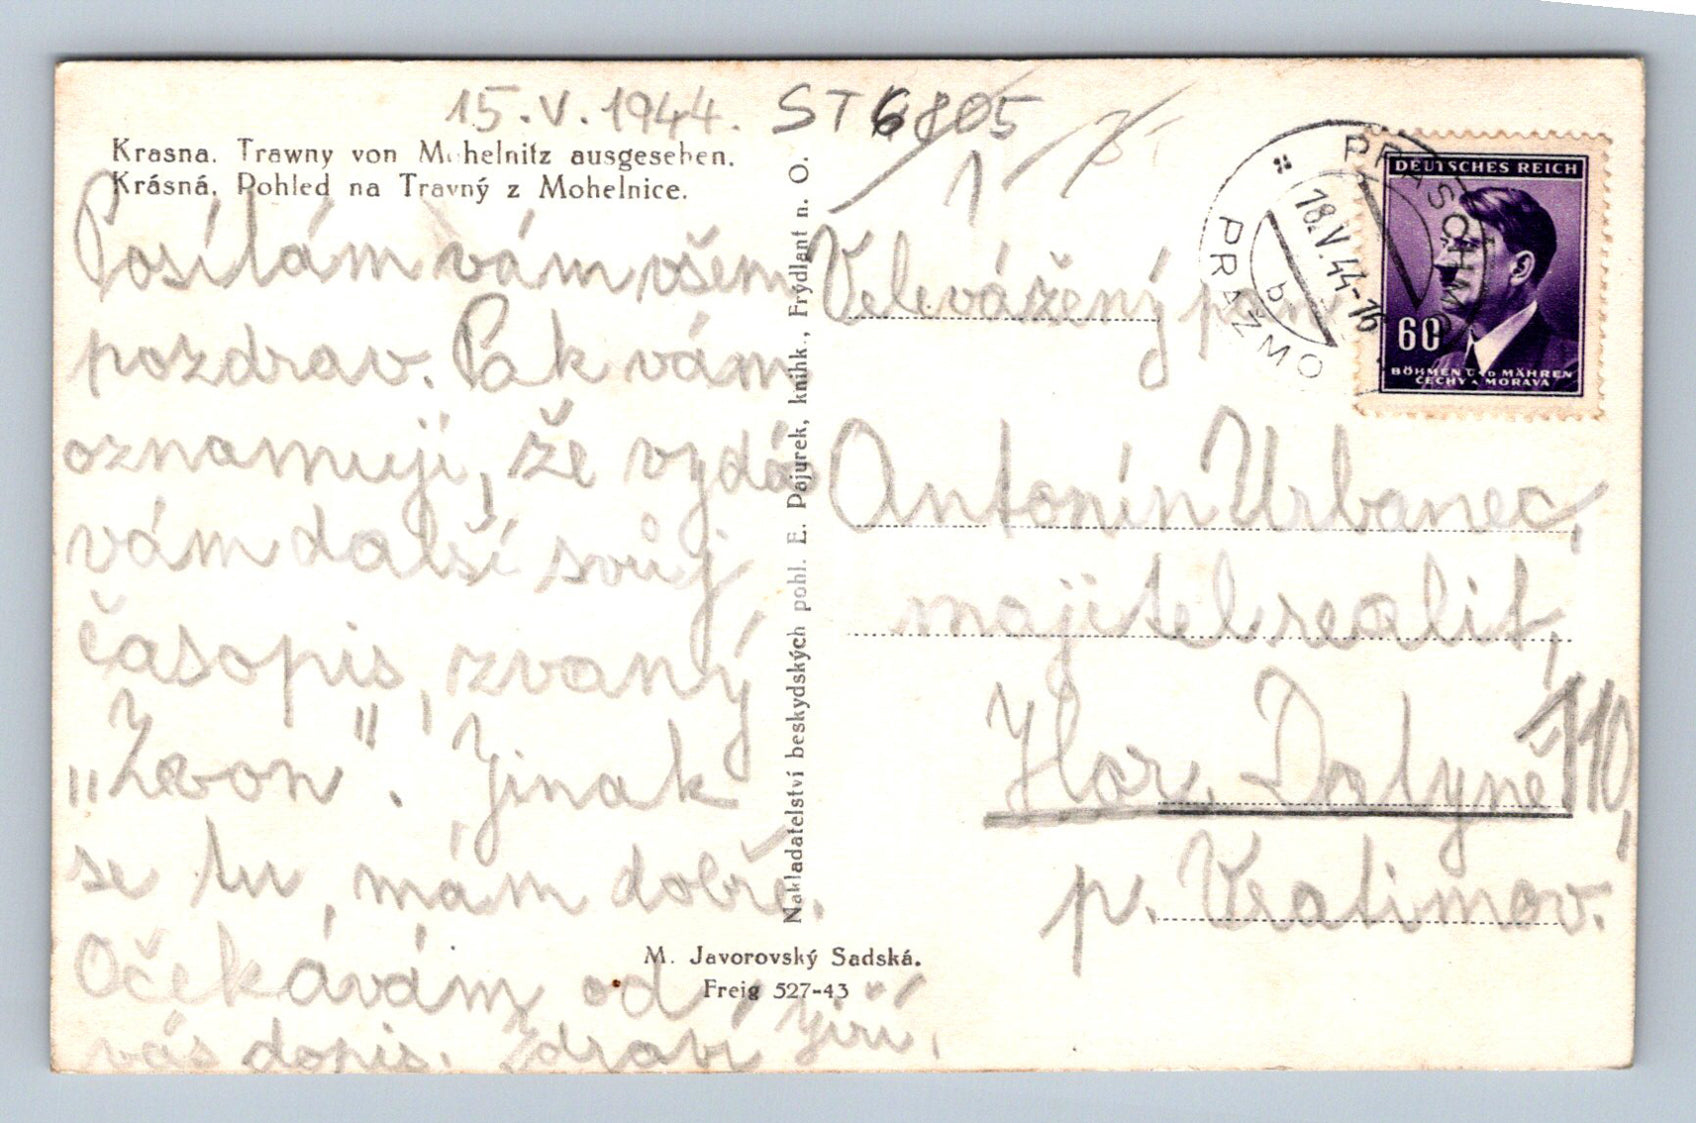 15.V.1944.
ST 6805
1
Krasna. Trawny von Mohelnitz ausgesehen.
Krásná. Pohled na Travný z Mohelnice.
Posílám vám všem
pozdrav. Pak vám
oznamuji, že vydá
vám další svůj
časopis, zvaný
„Zvon". Jinak
se tu, mám dobře.
Očekávám od
vás dopis. Zdraví Jiří.
Nakladatelství beskydských pohl. E. Pajurek, knihk., Frýdlant n. O.
M. Javorovský Sadská.
Freig 527-43
PRASCHMO
18.V.44-16
b
PRAŽMO
DEUTSCHES REICH
60
BÖHMEN UND MÄHREN
ČECHY A MORAVA
Velevážený pan
Antonín Urbanec,
majitel realit,
Hor. Datyně 110,
p. Vratimov.